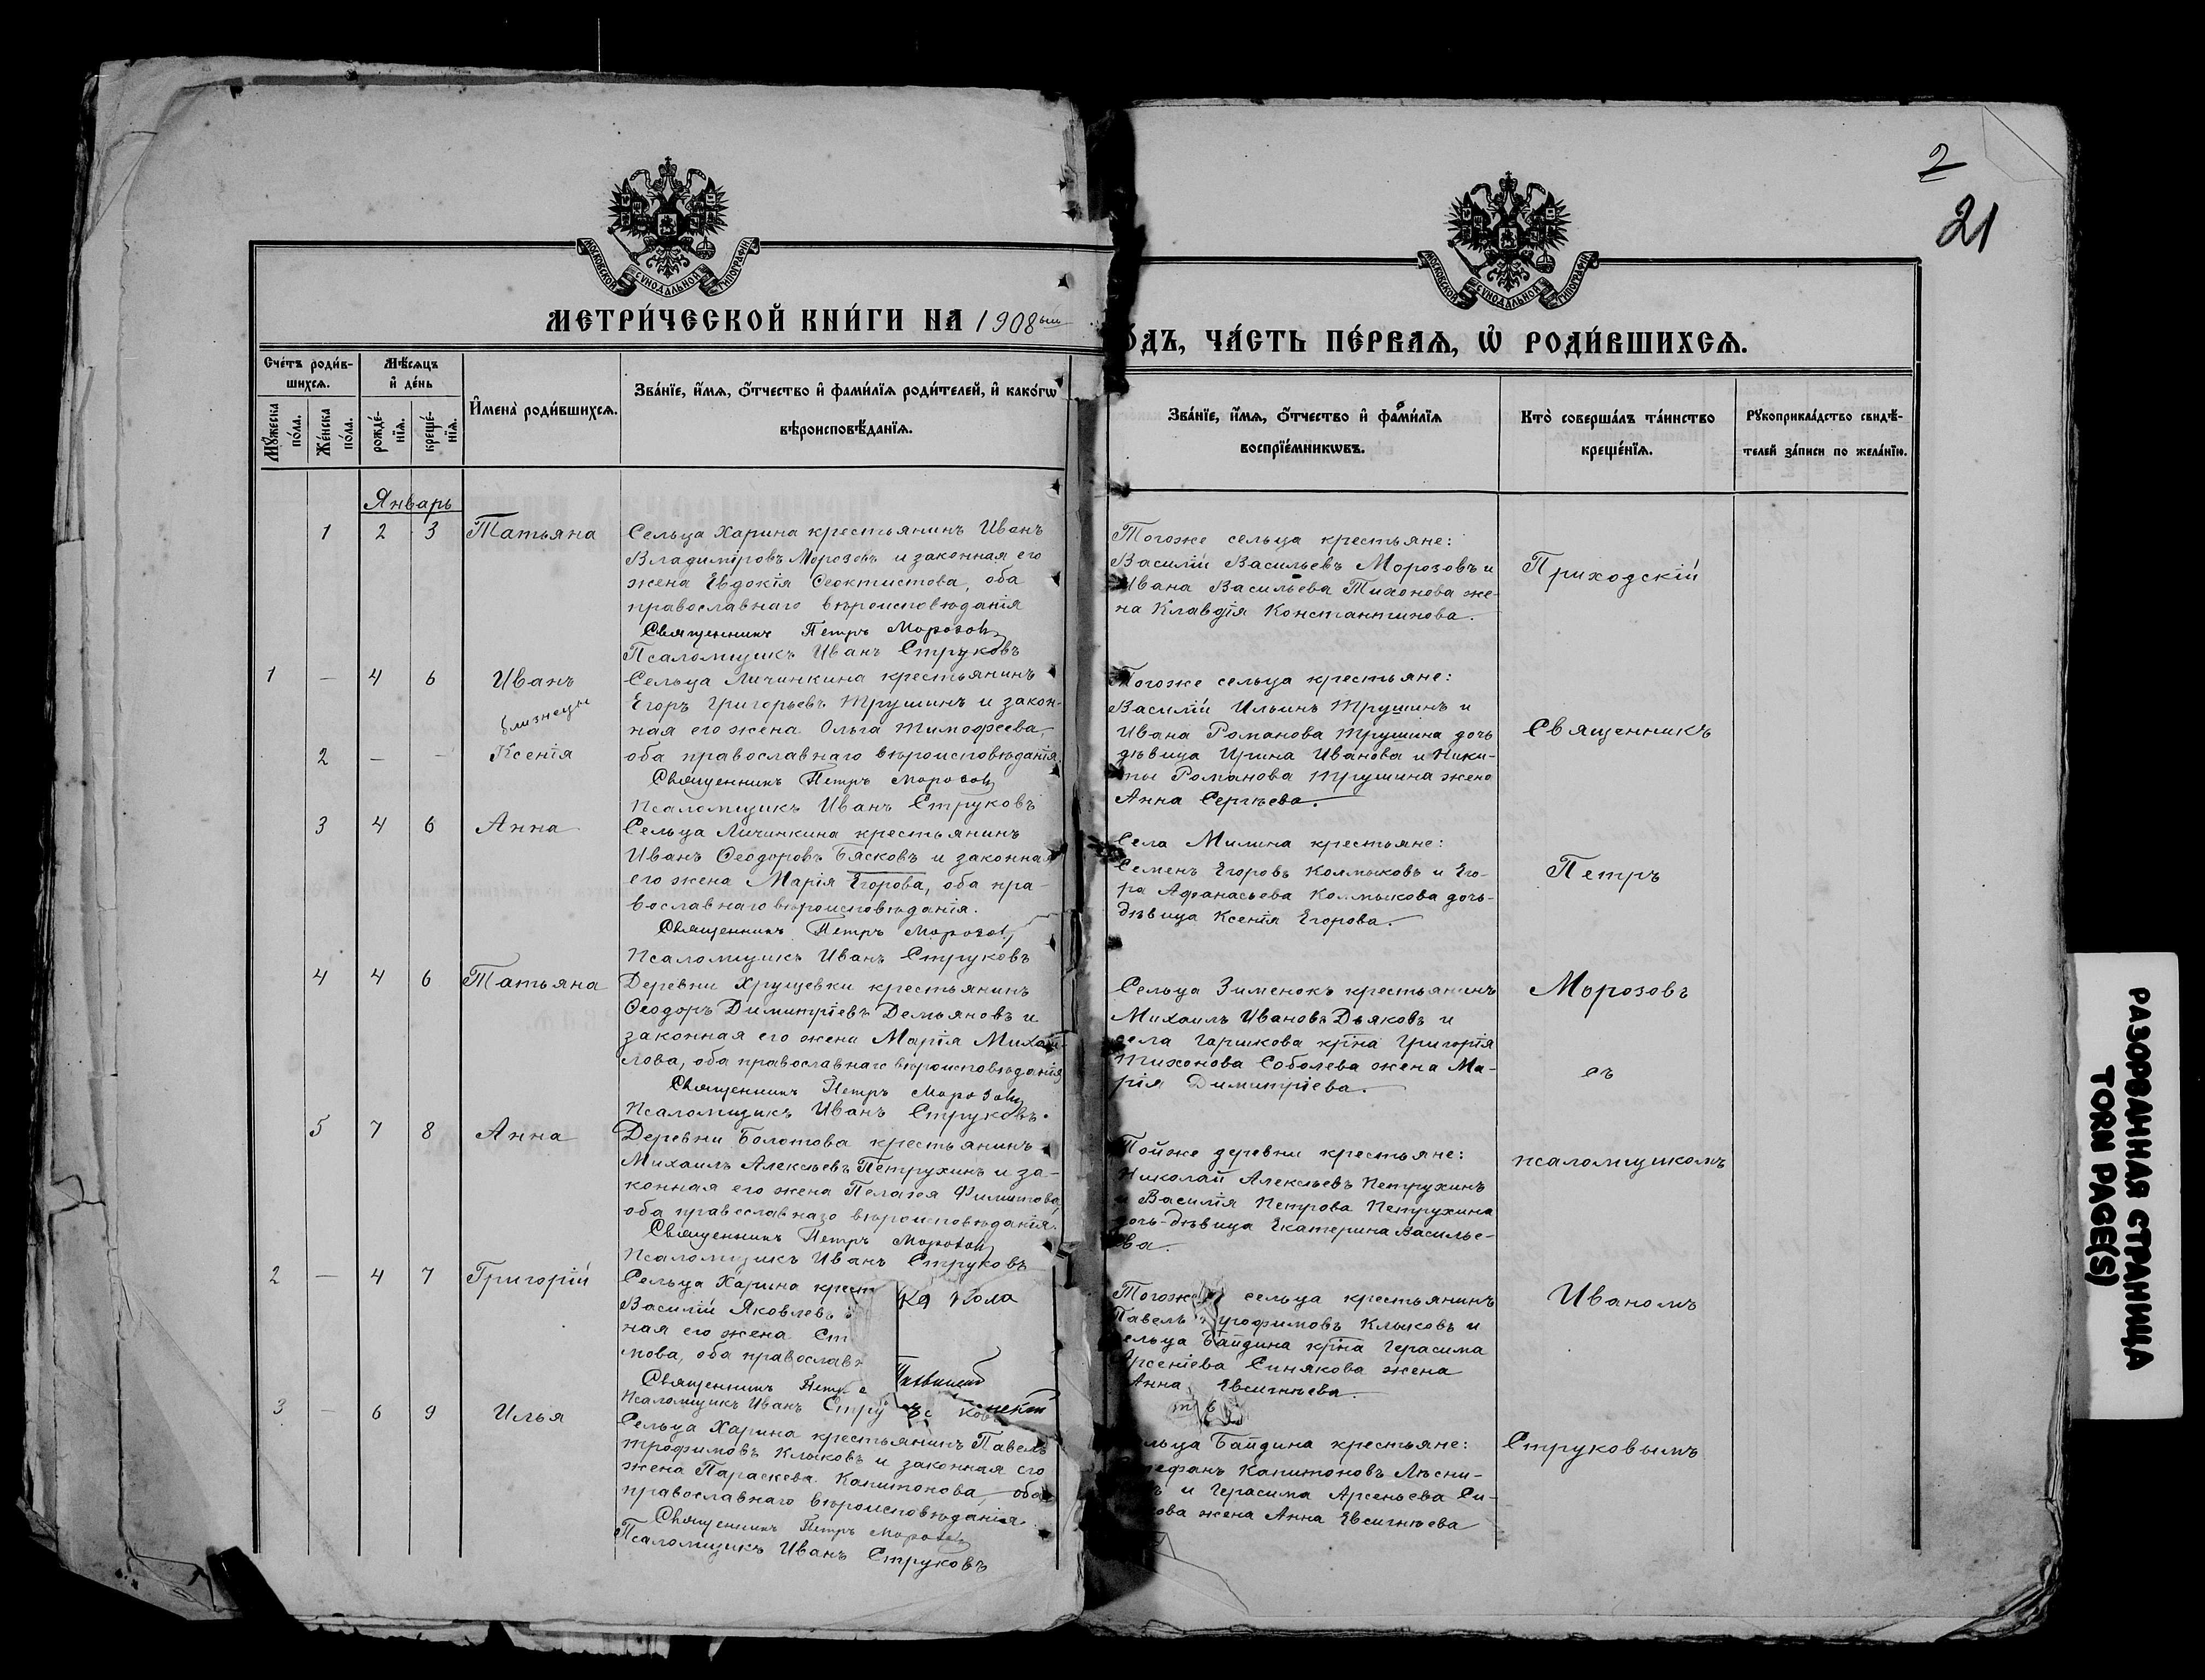 2
21
МОСКОВСКОЙ СУНОДАЛЬНОЙ ТИПОГРАФІИ
МОСКОВСКОЙ СУНОДАЛЬНОЙ ТИПОГРАФІИ
МЕТРИ́ЧЕСКОЙ КНИ́ГИ НА 1908
ОДЪ, ЧА́СТЬ ПЕ́РВАѦ, Ѡ҆ РОДИ́ВШИХСѦ.
Сче́тъ роди́в-
шихсѧ.
Мѣ́сѧцъ
и҆ де́нь
Мꙋ́жеска
по́ла.
Же́нска
по́ла.
рожде́-
нїѧ.
креще́-
нїѧ.
И҆мена̀ роди́вшихсѧ.
Зва́нїе, и҆́мѧ, ѻ҆́тчество и҆ фами́лїѧ роди́телей, и҆ како́гѡ
вѣроисповѣ́данїѧ.
Зва́нїе, и҆́мѧ, ѻ҆́тчество и҆ фами́лїѧ
воспрїе́мникѡвъ.
Кто̀ соверша́лъ та́инство
креще́нїѧ.
Рꙋкоприкла́дство свидѣ́-
телей за́писи по жела́нїю.
Январь
1 2 3 Татьяна
Сельца Харина крестьянинъ Иванъ
Владиміровъ Морозовъ и законная его
жена Евдокія Ѳеоктистова, оба
православнаго вѣроисповѣданія
Священникъ Петръ Морозовъ
Псаломщикъ Иванъ Струковъ
Тогоже сельца крестьяне:
Василій Васильевъ Морозовъ и
Ивана Васильева Тихонова же-
на Клавдія Константинова.
Приходскій
1 — 4 6 Иванъ
близнецы
2 — — Ксенія
Сельца Личинкина крестьянинъ
Егоръ Григорьевъ Трушинъ и закон-
ная его жена Ольга Тимофеева,
оба православнаго вѣроисповѣданія.
Священникъ Петръ Морозовъ
Псаломщикъ Иванъ Струковъ
Тогоже сельца крестьяне:
Василій Ильинъ Трушинъ и
Ивана Романова Трушина дочь
дѣвица Ирина Иванова и Ники-
ты Романова Трушина жена
Анна Сергѣева.
Священникъ
3 4 6 Анна
Сельца Личинкина крестьянинъ
Иванъ Ѳеодоровъ Бясковъ и законная
его жена Марія Егорова, оба пра-
вославнаго вѣроисповѣданія.
Священникъ Петръ Морозовъ
Псаломщикъ Иванъ Струковъ
Села Милина крестьяне:
Семенъ Егоровъ Колмыковъ и Его-
ра Афанасьева Колмыкова дочь-
дѣвица Ксенія Егорова.
Петръ
4 4 6 Татьяна
Деревни Хрущевки крестьянинъ
Ѳеодоръ Димитріевъ Демьяновъ и
законная его жена Марія Михай-
лова, оба православнаго вѣроисповѣданія
Священникъ Петръ Морозовъ
Псаломщикъ Иванъ Струковъ.
Сельца Зименокъ крестьянинъ
Михаилъ Ивановъ Дьяковъ и
села Гаршкова крїна Григорія
Тихонова Соболева жена Ма-
рія Димитріева.
Морозовъ
съ
5 7 8 Анна
Деревни Болотова крестьянинъ
Михаилъ Алексѣевъ Петрухинъ и за-
конная его жена Пелагея Филипова,
оба православнаго вѣроисповѣданія.
Священникъ Петръ Морозовъ
Псаломщикъ Иванъ Струковъ
Тойже деревни крестьяне:
Николай Алексѣевъ Петрухинъ
и Василія Петрова Петрухина
дочь-дѣвица Екатерина Василье-
ва.
псаломщикомъ
2 — 4 7 Григорій
Сельца Харина крест
Василій Яковлевъ
ная его жена Ст
мова, оба православн
Священникъ Петр
Псаломщикъ Иванъ Стру
Тогоже сельца крестьянинъ
Павелъ Трофимовъ Клыковъ и
сельца Байдина крїна Герасима
Арсеніева Синякова жена
Анна Евсигнѣева.
Иваномъ
3 — 6 9 Илья
Сельца Харина крестьянинъ Павелъ
Трофимовъ Клыковъ и законная его
жена Параскева Капитонова, оба
православнаго вѣроисповѣданія.
Священникъ Петръ Морозовъ
Псаломщикъ Иванъ Струковъ
льца Байдина крестьяне:
тефанъ Капитоновъ Лѣсни-
и Герасима Арсеньева Си-
кова жена Анна Евсигнѣева
Струковымъ
РАЗОРВАННАЯ СТРАНИЦА
TORN PAGE(S)